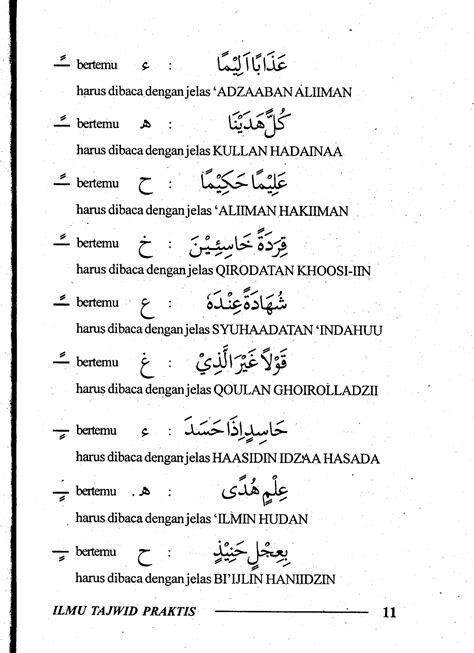 ـًـ bertemu ء : عَذَابًا اَلِيْمًا
harus dibaca dengan jelas ‘ADZAABAN ALIIMAN
ـًـ bertemu ﻫ : كُلًّ هَدَيْنَا
harus dibaca dengan jelas KULLAN HADAINAA
ـًـ bertemu ح : عَلِيْمًا حَكِيْمًا
harus dibaca dengan jelas ‘ALIIMAN HAKIIMAN
ـًـ bertemu خ : قِرَدَةً خَاسِئِيْنَ
harus dibaca dengan jelas QIRODATAN KHOOSI-IIN
ـًـ bertemu ع : شَهَادَةً عِنْدَهُ
harus dibaca dengan jelas SYUHAADATAN ‘INDAHUU
ـًـ bertemu غ : قَوْلًا غَيْرَ الَّذِيْ
harus dibaca dengan jelas QOULAN GHOIROLLADZII
ـٍـ bertemu ء : حَاسِدٍ اِذَا حَسَدَ
harus dibaca dengan jelas HAASIDIN IDZAA HASADA
ـٍـ bertemu ﻫ : عِلْمٍ هُدًى
harus dibaca dengan jelas ‘ILMIN HUDAN
ـٍـ bertemu ح : بِعِجْلٍ حَنِيْذٍ
harus dibaca dengan jelas BI’IJLIN HANIIDZIN
ILMU TAJWID PRAKTIS 11